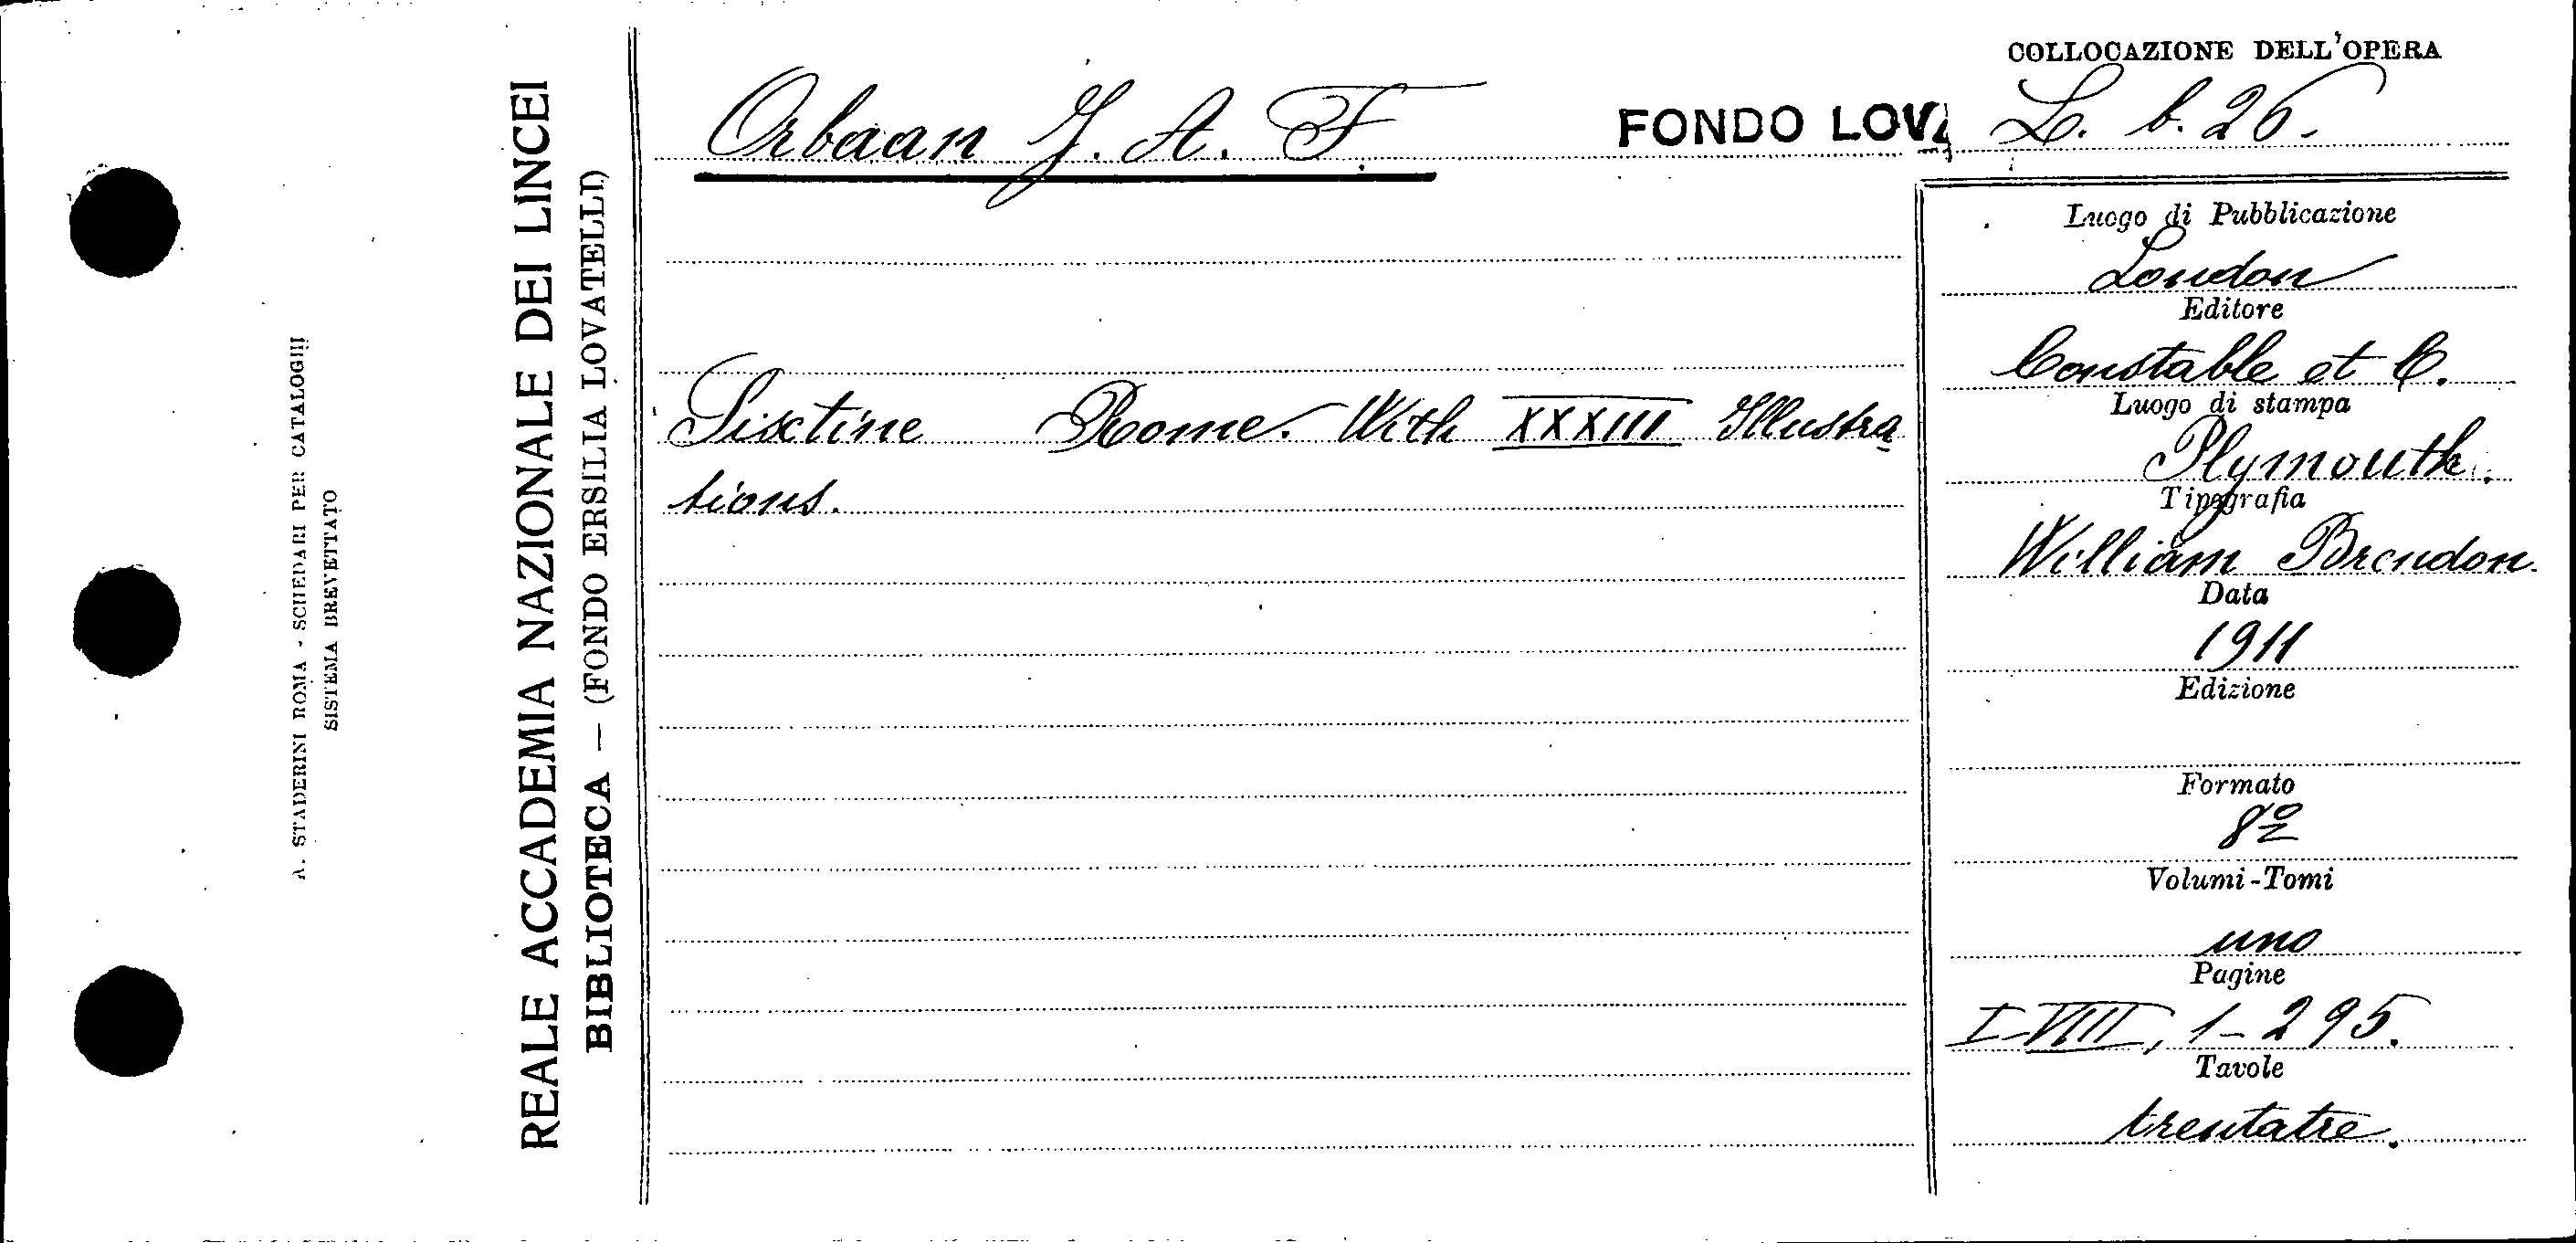 A. STADERINI ROMA - SCHEDARI PER CATALOGHI
SISTEMA BREVETTATO
REALE ACCADEMIA NAZIONALE DEI LINCEI
BIBLIOTECA — (FONDO ERSILIA LOVATELLI)
Orbaan J. A. F.
Sixtine Rome. With XXXIII Illustra
tions.
COLLOCAZIONE DELL'OPERA
FONDO LOVA L. b. 26.
Luogo di Pubblicazione
London
Editore
Constable et C.
Luogo di stampa
Plymouth.
Tipografia
William Brendon.
Data
1911
Edizione
Formato
8º
Volumi-Tomi
uno
Pagine
I-VIII, 1-295.
Tavole
trentatre.